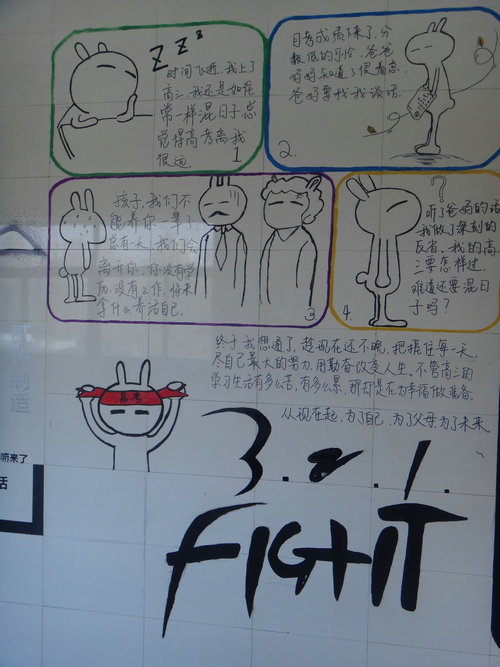 Z Z 3
时间飞逝，我上了
高三，我还是如往
常一样混日子总
觉得高考离我
很远
1
月考成绩下来了，分
数低的可怜，爸爸
妈妈知道了很着急，
爸妈要找我谈话.
2.
孩子，我们不
能养你一辈子
总有一天，我们会
离开你，你没有学
历，没有工作，将来
拿什么养活自己.
3
?
听了爸妈的话
我做了深刻的
反省，我的高
三要怎样过，
难道还要混日
子吗？
4.
终于我想通了，趁现在还不晚，把握住每一天，
尽自己最大的努力，用勤奋改变人生，不管高三的
学习生活有多么苦，有多么累，那都是在为幸福做准备.
从现在起，为了自己，为了父母，为了未来
高考
3.2.1.
FIGHIT
嘛来了
话